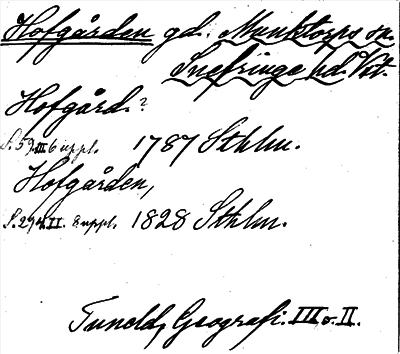 Hofgården gd. Munktorps sn.
Snefringe hd. Vst.
Hofgård.?
S. 59. III 6 uppl. 1787 Sthlm.
Hofgården,
S. 294. II. 8 uppl. 1828 Sthlm.
Tuneld, Geografi. III o. II.